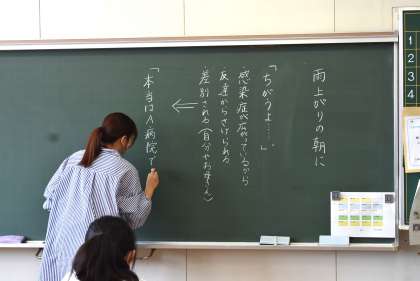 雨上がりの朝に
「ちがうよ……」
・感染症が広がっているから
友達からさけられる
・差別される(自分やお母さん)
「本当はA病院で
1
2
3
4